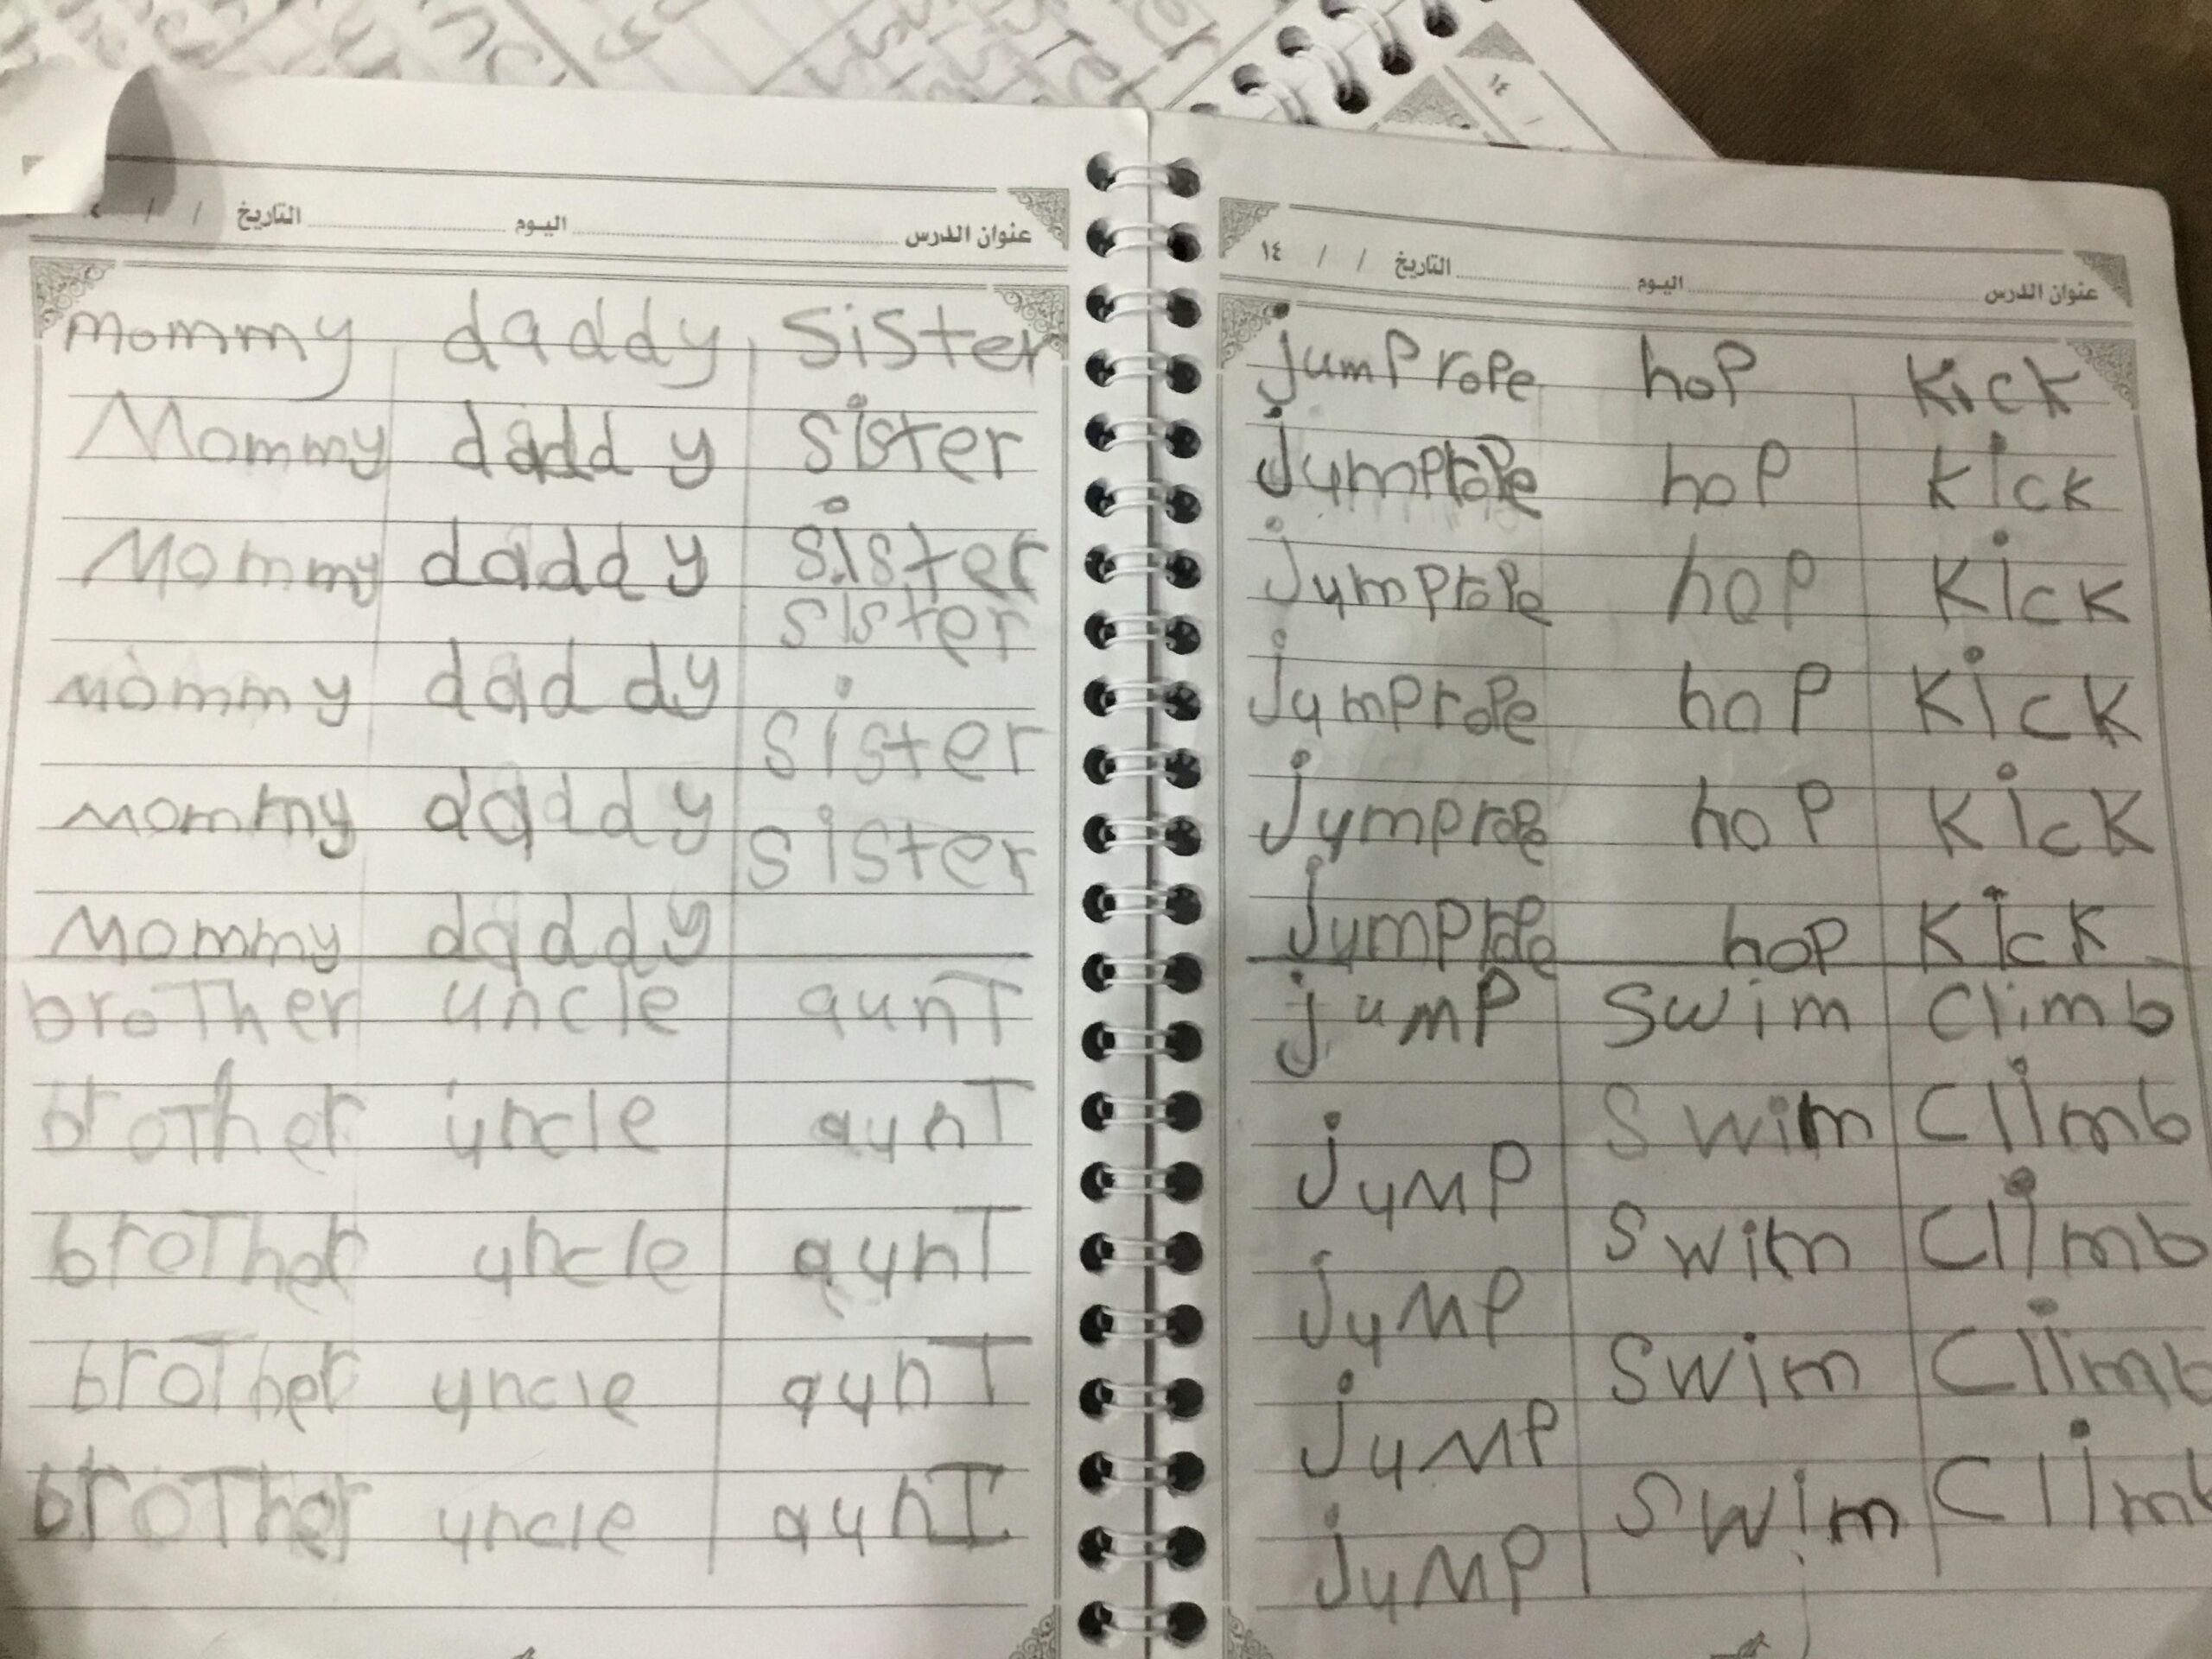 عنوان الدرس اليوم التاريخ / /
mommy daddy sister
Mommy daddy sister
Mommy daddy sister
sister
mommy daddy
sister
mommy daddy
sister
Mommy daddy
broTher uncle aunT
broTher uncle aunT
broTher uncle aunT
broTher uncle aunT
broTher uncle aunT
عنوان الدرس اليوم التاريخ / / ١٤
jumP roPe hoP Kick
jumProPe hoP Kick
jumProPe hoP Kick
jumProPe hoP Kick
jumProPe hoP Kick
jumProPe hoP Kick
jumP Swim Climb
jumP Swim Climb
jumP Swim Climb
jumP Swim Climb
jumP Swim Climb